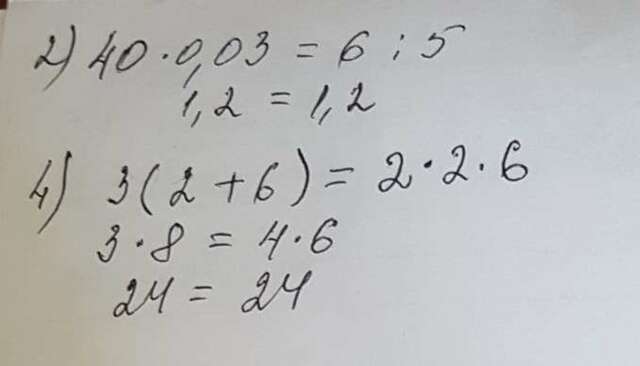 2) 40 · 0,03 = 6 : 5
1,2 = 1,2
4) 3(2 + 6) = 2 · 2 · 6
3 · 8 = 4 · 6
24 = 24